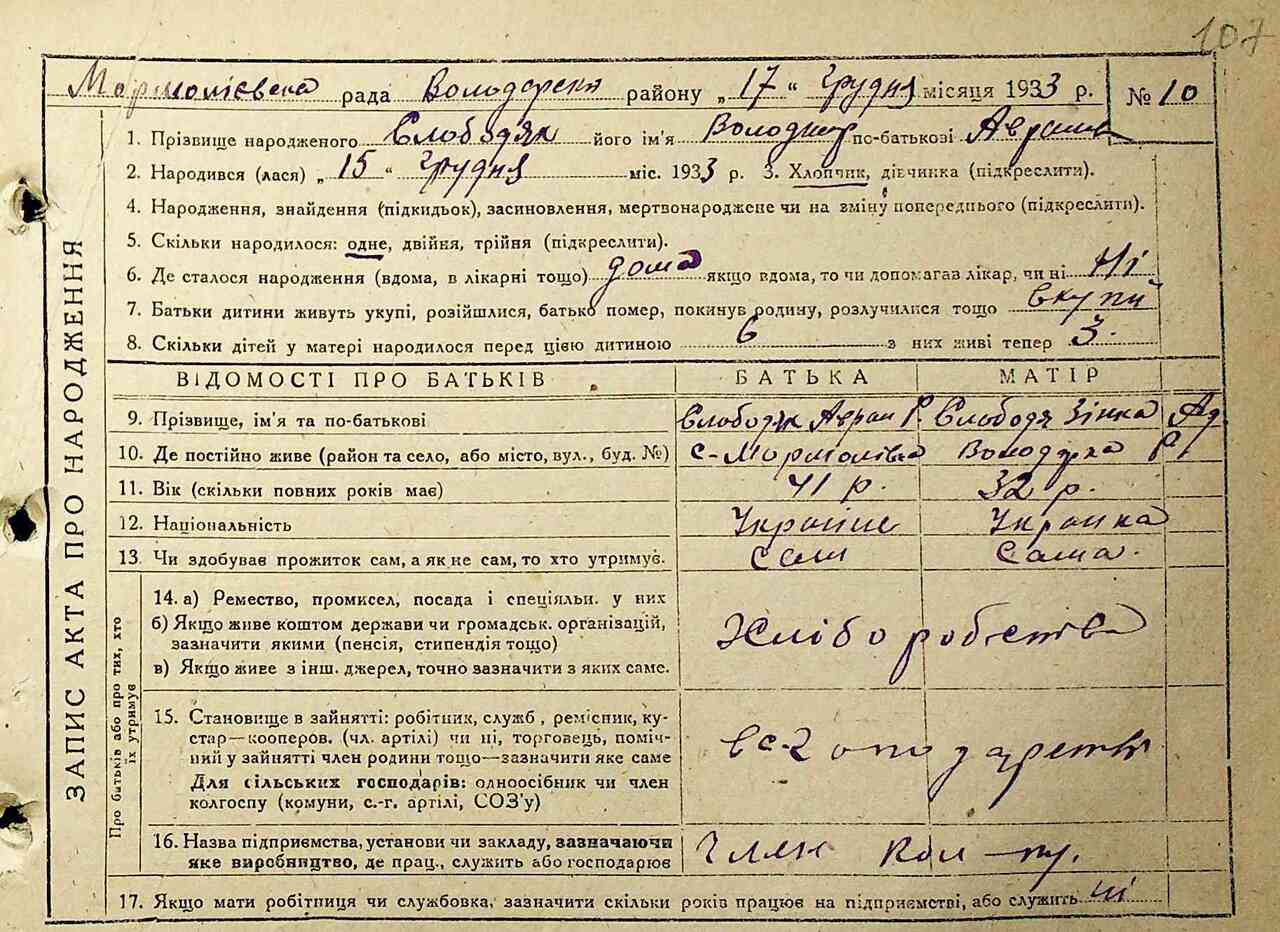 107
Мармоліевска рада Володарська району „17“ Грудня місяця 1933 р. № 10
1. Прізвище народженого Слободяк його ім'я Володимір по-батькові Аврамів
2. Народився (лася) „15“ Грудня міс. 1933 р. 3. Хлопчик, дівчинка (підкреслити).
4. Народження, знайдення (підкидьок), засиновлення, мертвонароджене чи на зміну попереднього (підкреслити).
5. Скільки народилося: одне, двійня, трійня (підкреслити).
6. Де сталося народження (вдома, в лікарні тощо) дома якщо вдома, то чи допомагав лікар, чи ні Ні
7. Батьки дитини живуть укупі, розійшлися, батько помер, покинув родину, розлучилися тощо вкупи
8. Скільки дітей у матері народилося перед цією дитиною 6 з них живі тепер 3.
ЗАПИС АКТА ПРО НАРОДЖЕННЯ
ВІДОМОСТІ ПРО БАТЬКІВ БАТЬКА МАТІР
9. Прізвище, ім'я та по-батькові Слободяк Аврам Р. Слободя Зінка Ад
10. Де постійно живе (район та село, або місто, вул., буд. №) с-Мормолівка Володарка Р
11. Вік (скільки повних років має) 41 р. 32 р.
12. Національність Украинец Украинка
13. Чи здобував прожиток сам, а як не сам, то хто утримує. Сам Сама.
Про батьків або про тих, хто
їх утримує
14. а) Ремество, промисел, посада і спеціяльн. у них
б) Якщо живе коштом держави чи громадськ. організацій,
зазначити якими (пенсія, стипендія тощо)
в) Якщо живе з інш. джерел, точно зазначити з яких саме.
Хліборобства
15. Становище в зайнятті: робітник, служб., ремісник, ку-
стар—кооперов. (чл. артілі) чи ні, торговець, поміч-
ний у зайнятті член родини тощо—зазначити яке саме
Для сільських господарів: одноосібник чи член
колгоспу (комуни, с.-г. артілі, СОЗ'у)
16. Назва підприємства, установи чи закладу, зазначаючи
яке виробництво, де прац., служить або господарює Член кол-пу.
17. Якщо мати робітниця чи службовка, зазначити скільки років працює на підприємстві, або служить ні